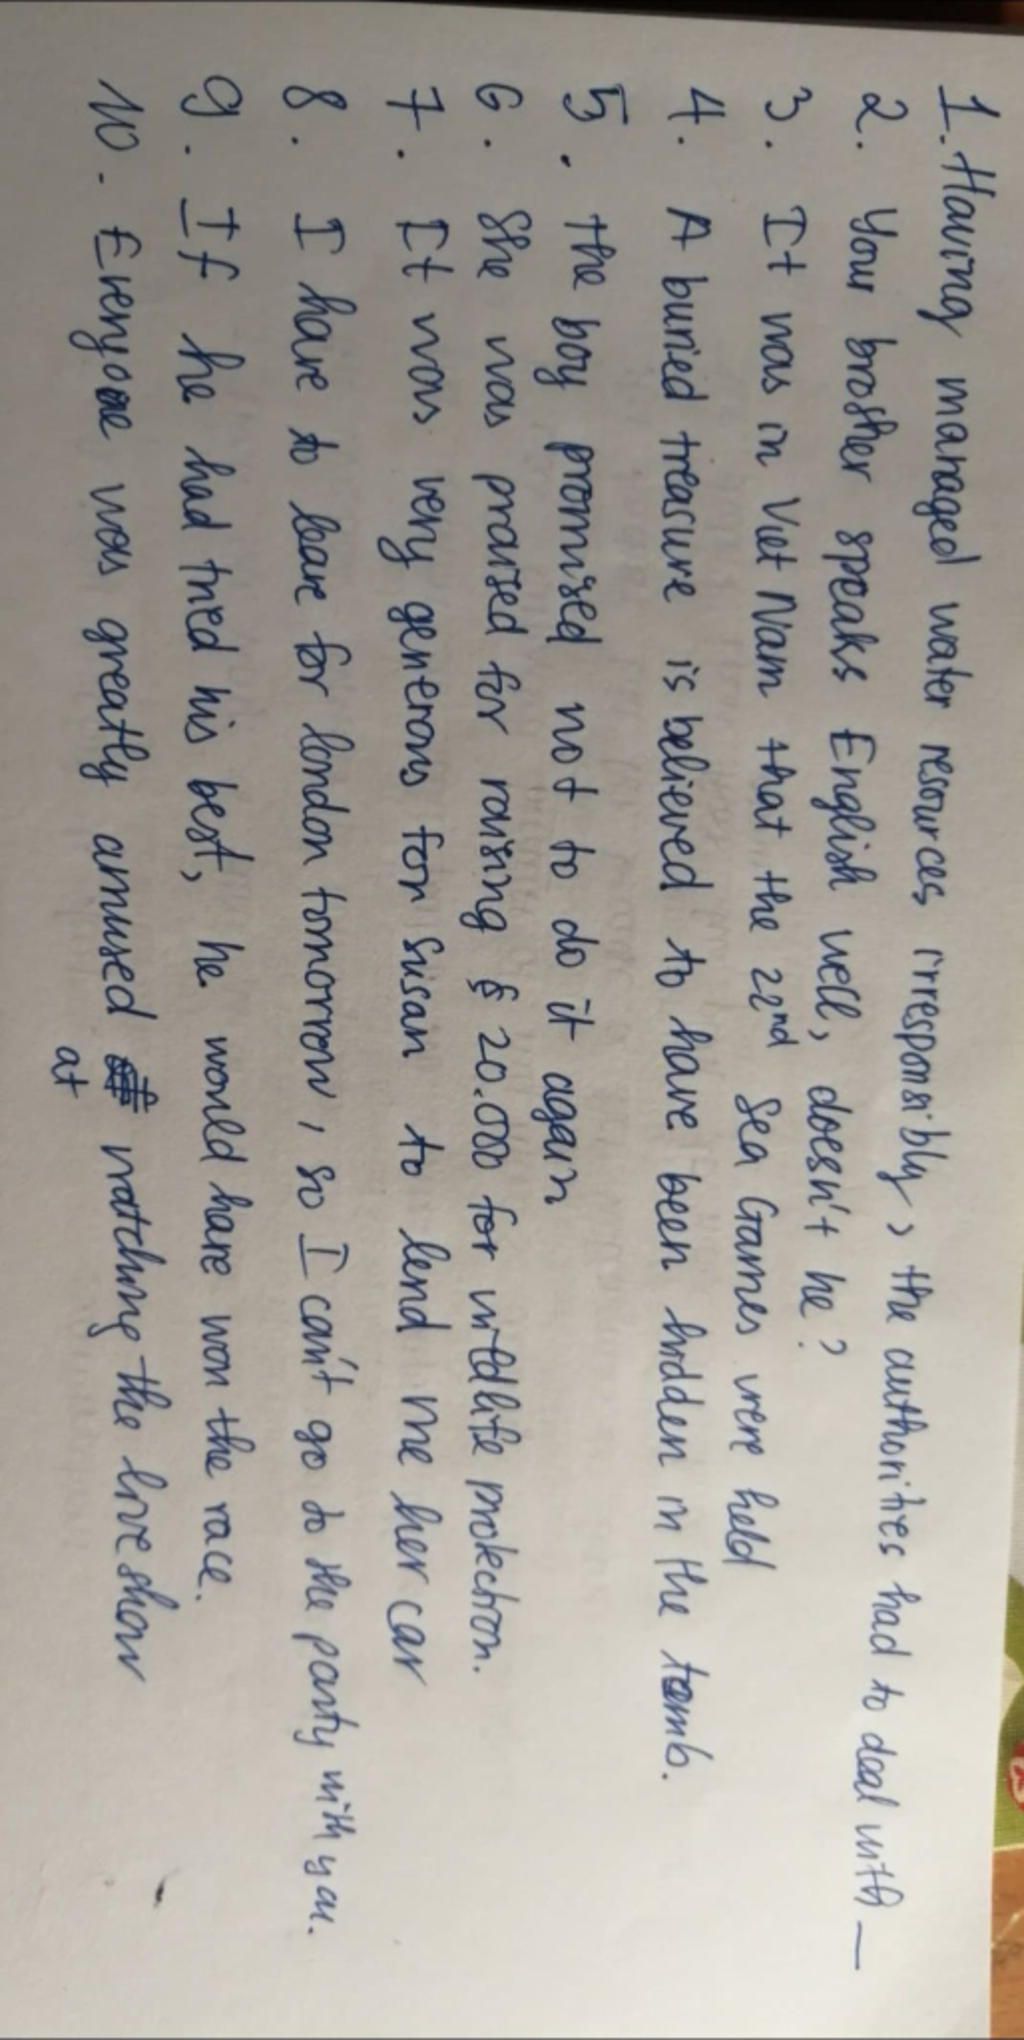 1. Having managed water resources irresponsibly, the authorities had to deal with —
2. Your brother speaks English well, doesn't he?
3. It was in Viet Nam that the 22nd Sea Games were held
4. A buried treasure is believed to have been hidden in the tomb.
5. the boy promised not to do it again
6. She was praised for raising $ 20.000 for wildlife protection.
7. It was very generous for susan to lend me her car
8. I have to leave for london tomorrow, so I can't go to the party with you.
9. If he had tried his best, he would have won the race.
10. Everyone was greatly amused at watching the live show